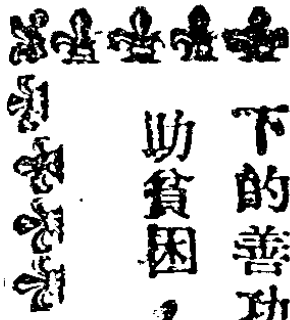 下的善功
助貧困，